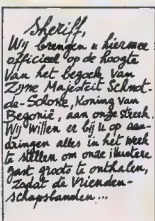 Sheriff,
Wij brengen u hiermee
officieel op de hoogte
van het bezoek van
Zijne Majesteit Schnot-
de-Solose, Koning van
Begonië, aan onze streek.
Wij willen er bij u op aan-
dringen alles in het werk
te stellen om onze illustere
gast groots te onthalen,
zodat de vrienden-
schapsbanden...